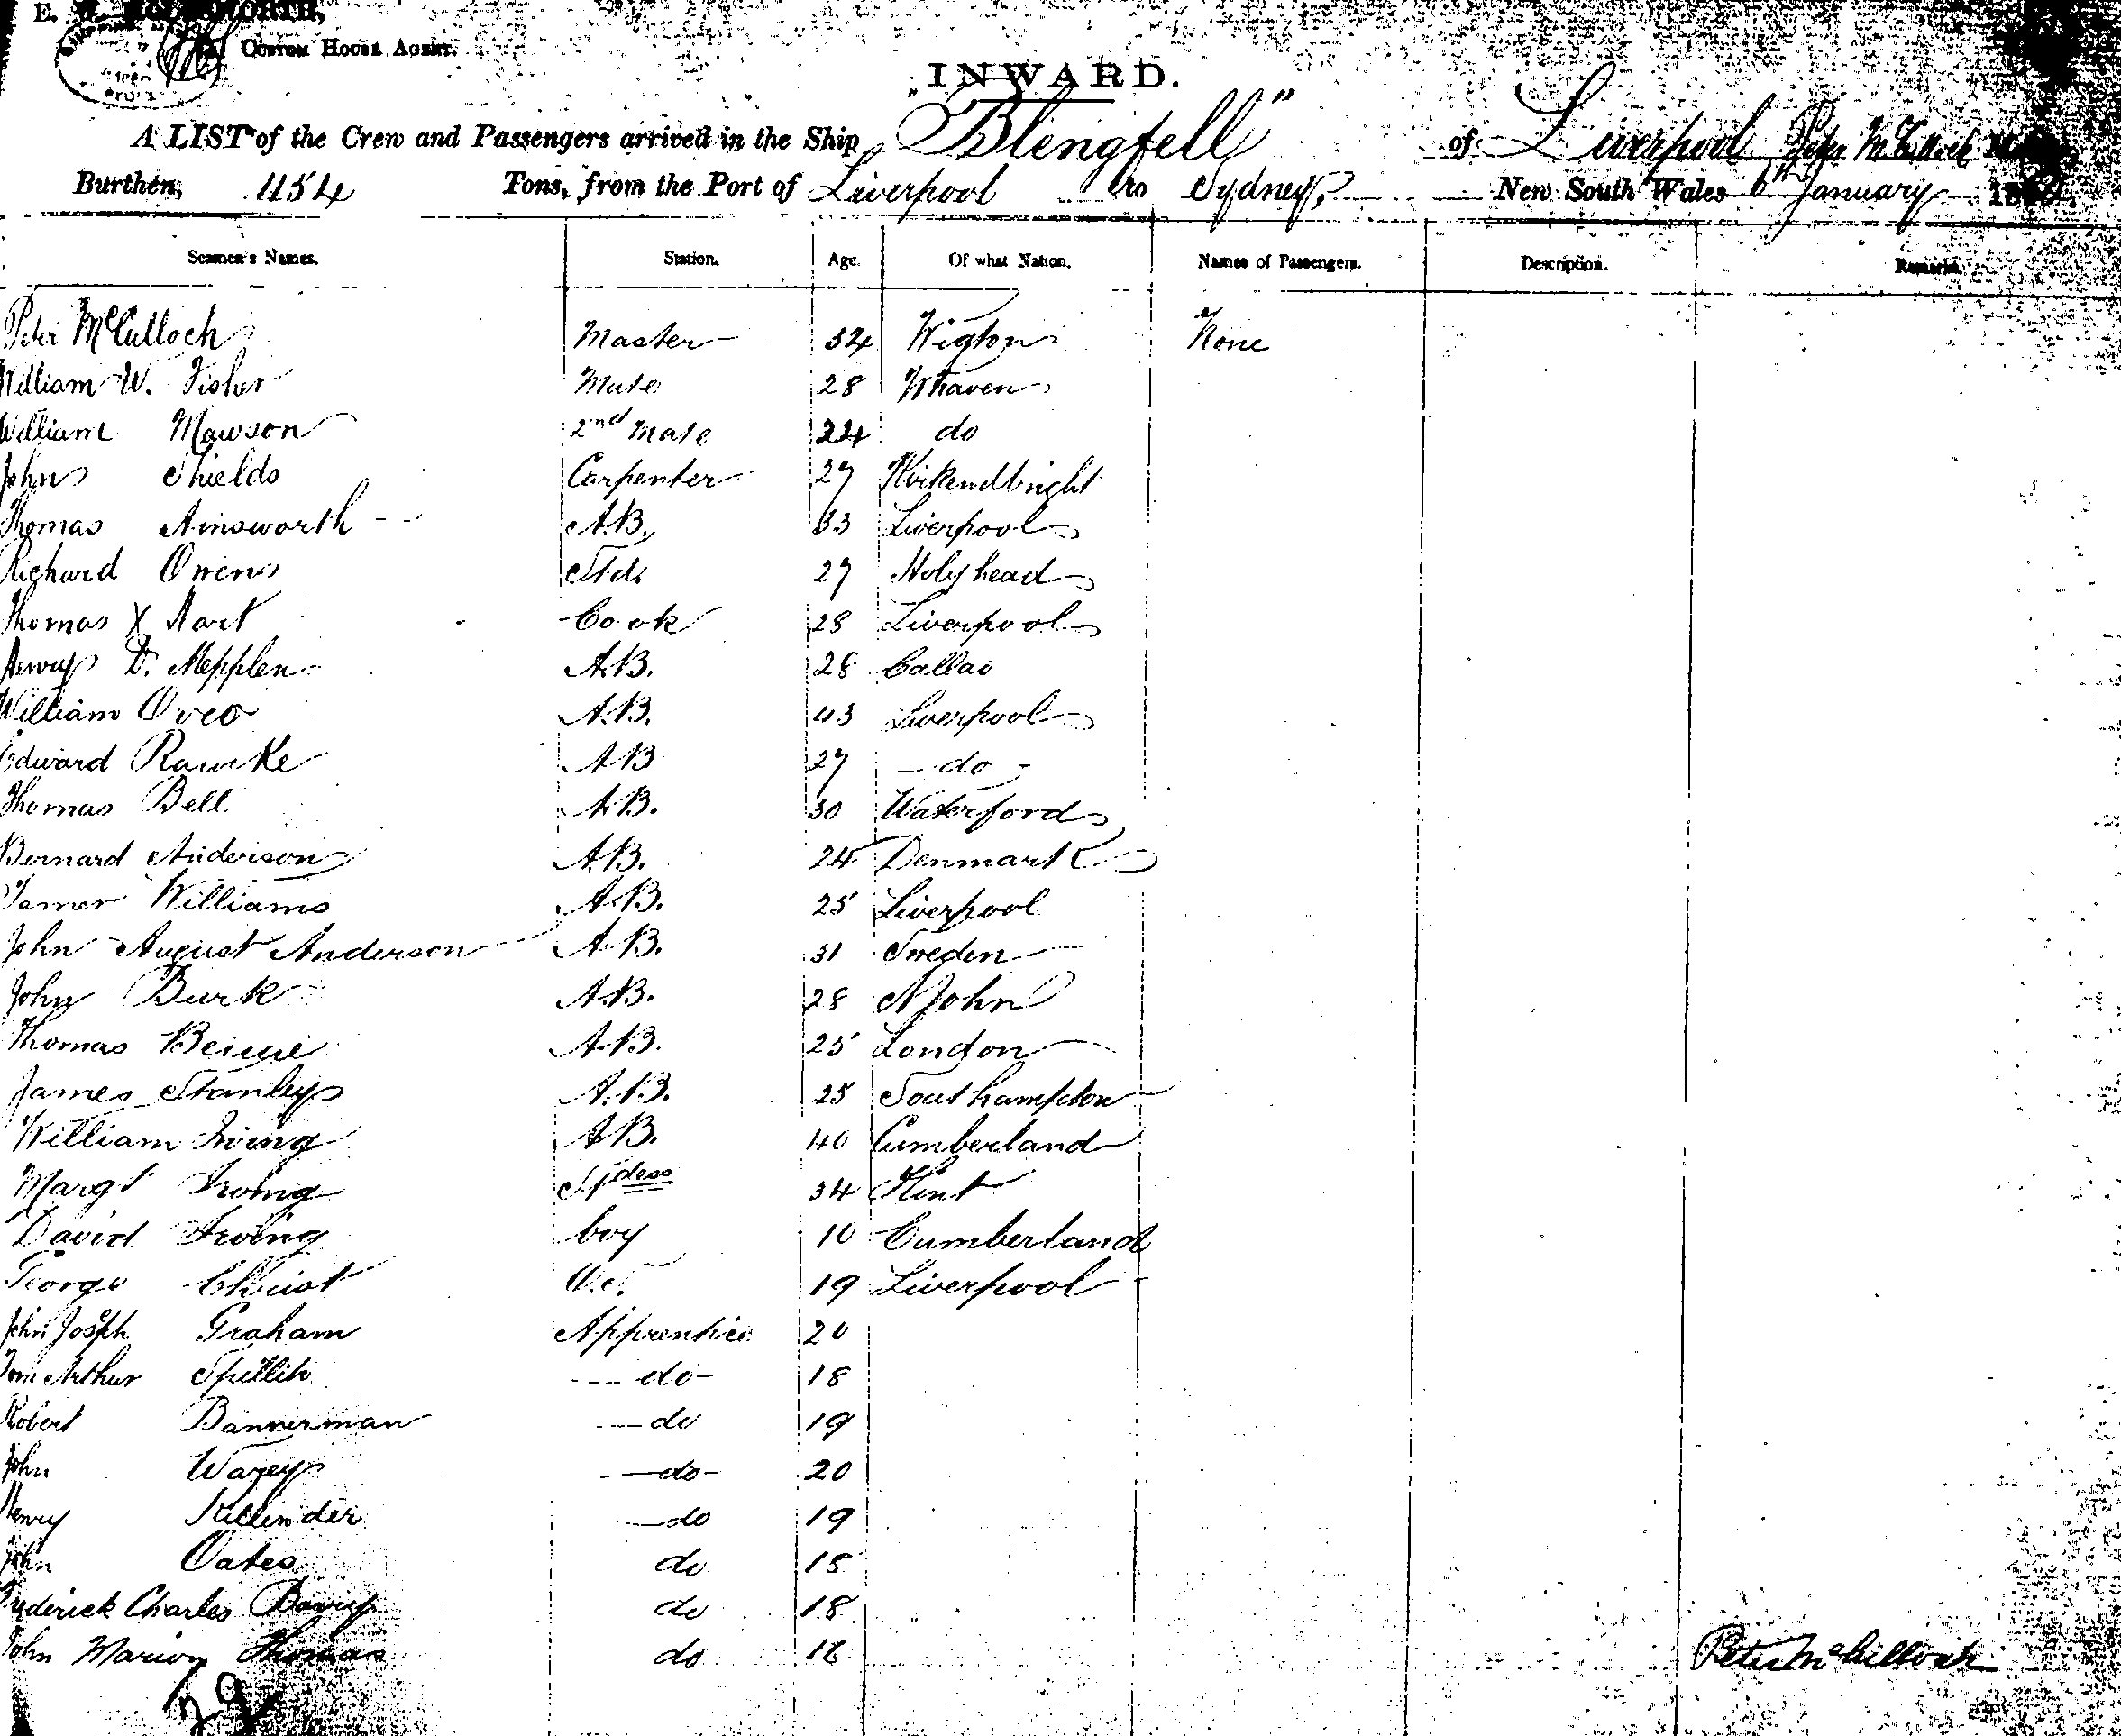 E.
Custom House Agent.
INWARD.
A LIST of the Crew and Passengers arrived in the Ship "Blengfell" of Liverpool Peter McCulloch
Burthen, 1154 Tons, from the Port of Liverpool to Sydney, New South Wales 6th January
Seamen's Names. Station. Age. Of what Nation. Names of Passengers. Description. Remarks
Peter McCulloch Master 34 Wigton None
William W. Fisher Mate 28 Whaven
William Mawson 2nd Mate 24 do
John Shields Carpenter 27 Kirkcudbright
Thomas Ainsworth A.B. 33 Liverpool
Richard Owens Std. 27 Holyhead
Thomas X Hart Cook 28 Liverpool
D. Mepplen A.B. 28 Callao
William A.B. 43 Liverpool
Edward Rawcke A.B 27 do
Thomas Bell A.B. 30 Waterford
Bernard Anderson A.B. 24 Denmark
Williams A.B. 25 Liverpool
John August Anderson A.B. 31 Sweden
John Burk A.B. 28 St John
Thomas A.B. 25 London
James Stanley A.B. 25 Southampton
William Irving A.B. 40 Cumberland
Margt Irving Stdess 34 Flint
David Irving boy 10 Cumberland
George Christ O.S. 19 Liverpool
John Joseph Graham Apprentice 20
Tom Arthur do 18
Robert Bannerman do 19
John Warey do 20
Henry Killender do 19
John Oates do 18
Frederick Charles do 18
John Marion Thomas do 16
Peter McCulloch
29